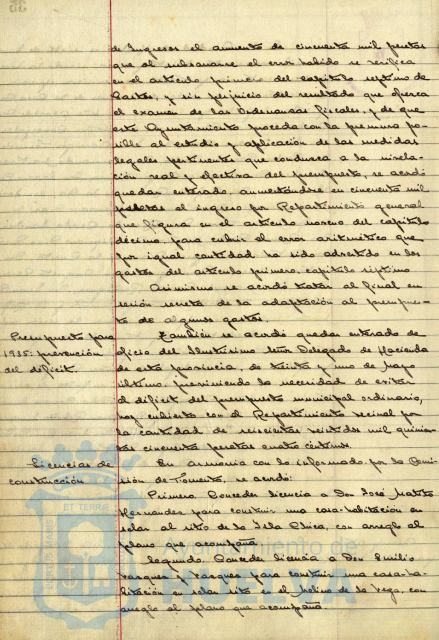 de Ingresos el aumento de cincuenta mil pesetas
que al subsanarse el error habido se verifica
en el artículo primero del capítulo séptimo de
Gastos, y sin perjuicio del resultado que ofrezca
el examen de las Ordenanzas fiscales, y de que
este Ayuntamiento proceda con la premura po-
sible al estudio y aplicación de las medidas
legales pertinentes que conduzca a la nivela-
ción real y efectiva del presupuesto, se acordó
quedar enterado, aumentándose en cincuenta mil
pesetas el ingreso por Repartimiento general
que figura en el artículo noveno del capítulo
décimo, para cubrir el error aritmético que
por igual cantidad ha sido advertido en los
gastos del artículo primero, capítulo séptimo
Asimismo se acordó tratar al final en
sesión secreta de la adaptación al presupues-
to de algunos gastos.
Presupuesto para
1935: prevención
del déficit.
También se acordó quedar enterado de
oficio del Ilustrísimo Señor Delegado de Hacienda
de esta provincia, de treinta y uno de Mayo
último, previniendo la necesidad de evitar
el déficit del presupuesto municipal ordinario,
hoy cubierto con el Repartimiento vecinal por
la cantidad de seiscientas veintidós mil quinien-
tas cincuenta pesetas cuatro céntimos.
Licencias de
construcción
En armonía con lo informado por la Comi-
sión de Fomento, se acordó:
Primero. Conceder licencia a Don José
Hernández para construir una casa-habitación en
solar al sitio de la Isla Chica, con arreglo al
plano que acompaña.
Segundo. Conceder licencia a Don Emilio
Vázquez y Vázquez para construir una casa-ha-
bitación en solar sito en el Molino de la Vega, con
arreglo al plano que acompaña.
ET TERRÆ
Ayuntamiento de
HUELVA